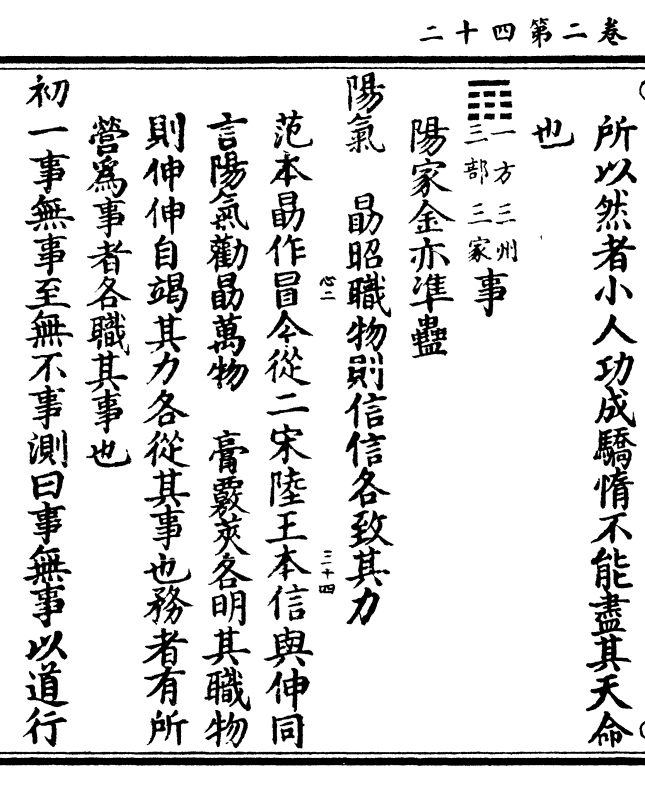 卷二第四十二
所以然者小人功成驕惰不能盡其天命
也
一方三州
三部三家
事
陽家金亦準蠱
陽氣　勗昭職物則信信各致其力
心二
三十四
范本勗作冒今從二宋陸王本信與伸同
言陽氣勸勗萬物　膏覈莢各明其職物
則伸伸自竭其力各從其事也務者有所
營爲事者各職其事也
初一事無事至無不事測曰事無事以道行